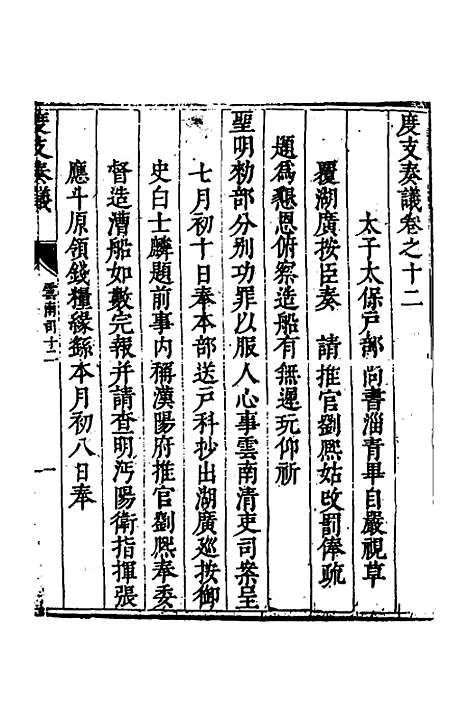 度支奏議卷之十二
太子太保戶部尚書淄青畢自嚴視草
覆湖廣按臣奏 請推官劉熈姑改罰俸疏
題爲懇恩俯察造船有無遲玩仰祈
聖明勑部分别功罪以服人心事雲南清吏司案呈
七月初十日奉本部送戶科抄出湖廣巡按御
史白士麟題前事內稱漢陽府推官劉熈奉委
督造漕船如數完報并請查明沔陽衛指揮張
應斗原領錢糧緣繇本月初八日奉
度支奏議
雲南司十二
一